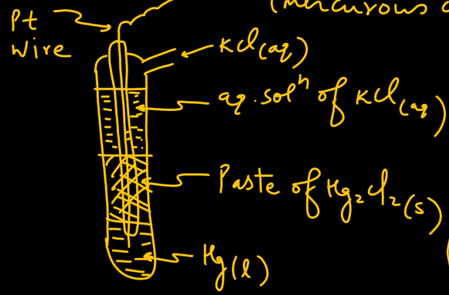 (mercurous
Pt
wire
KCl(aq)
aq. solⁿ of KCl(aq)
Paste of Hg₂Cl₂(s)
Hg(l)